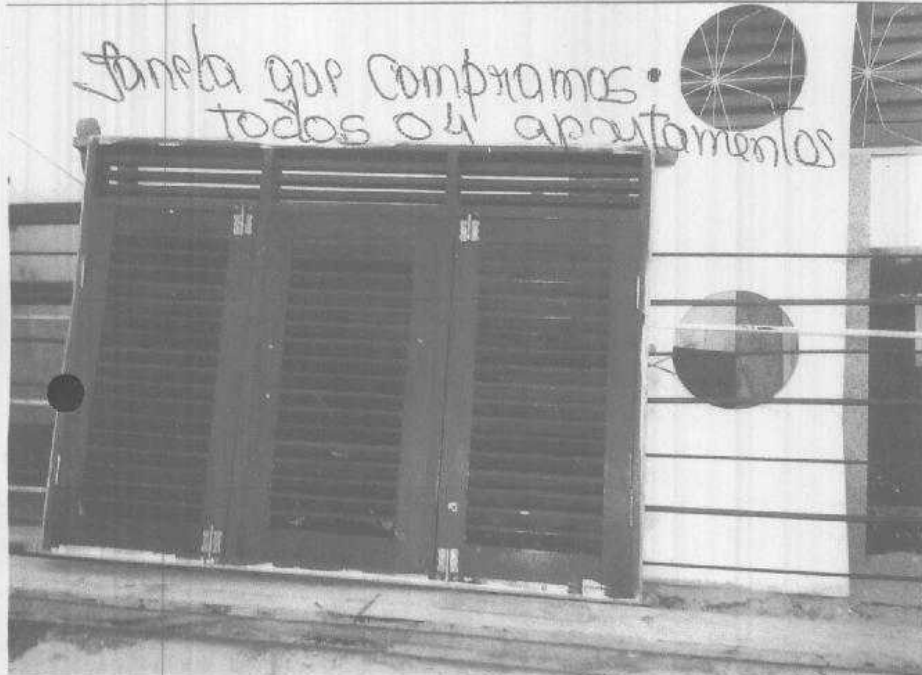 Janela que compramos.
todos 04 apartamentos